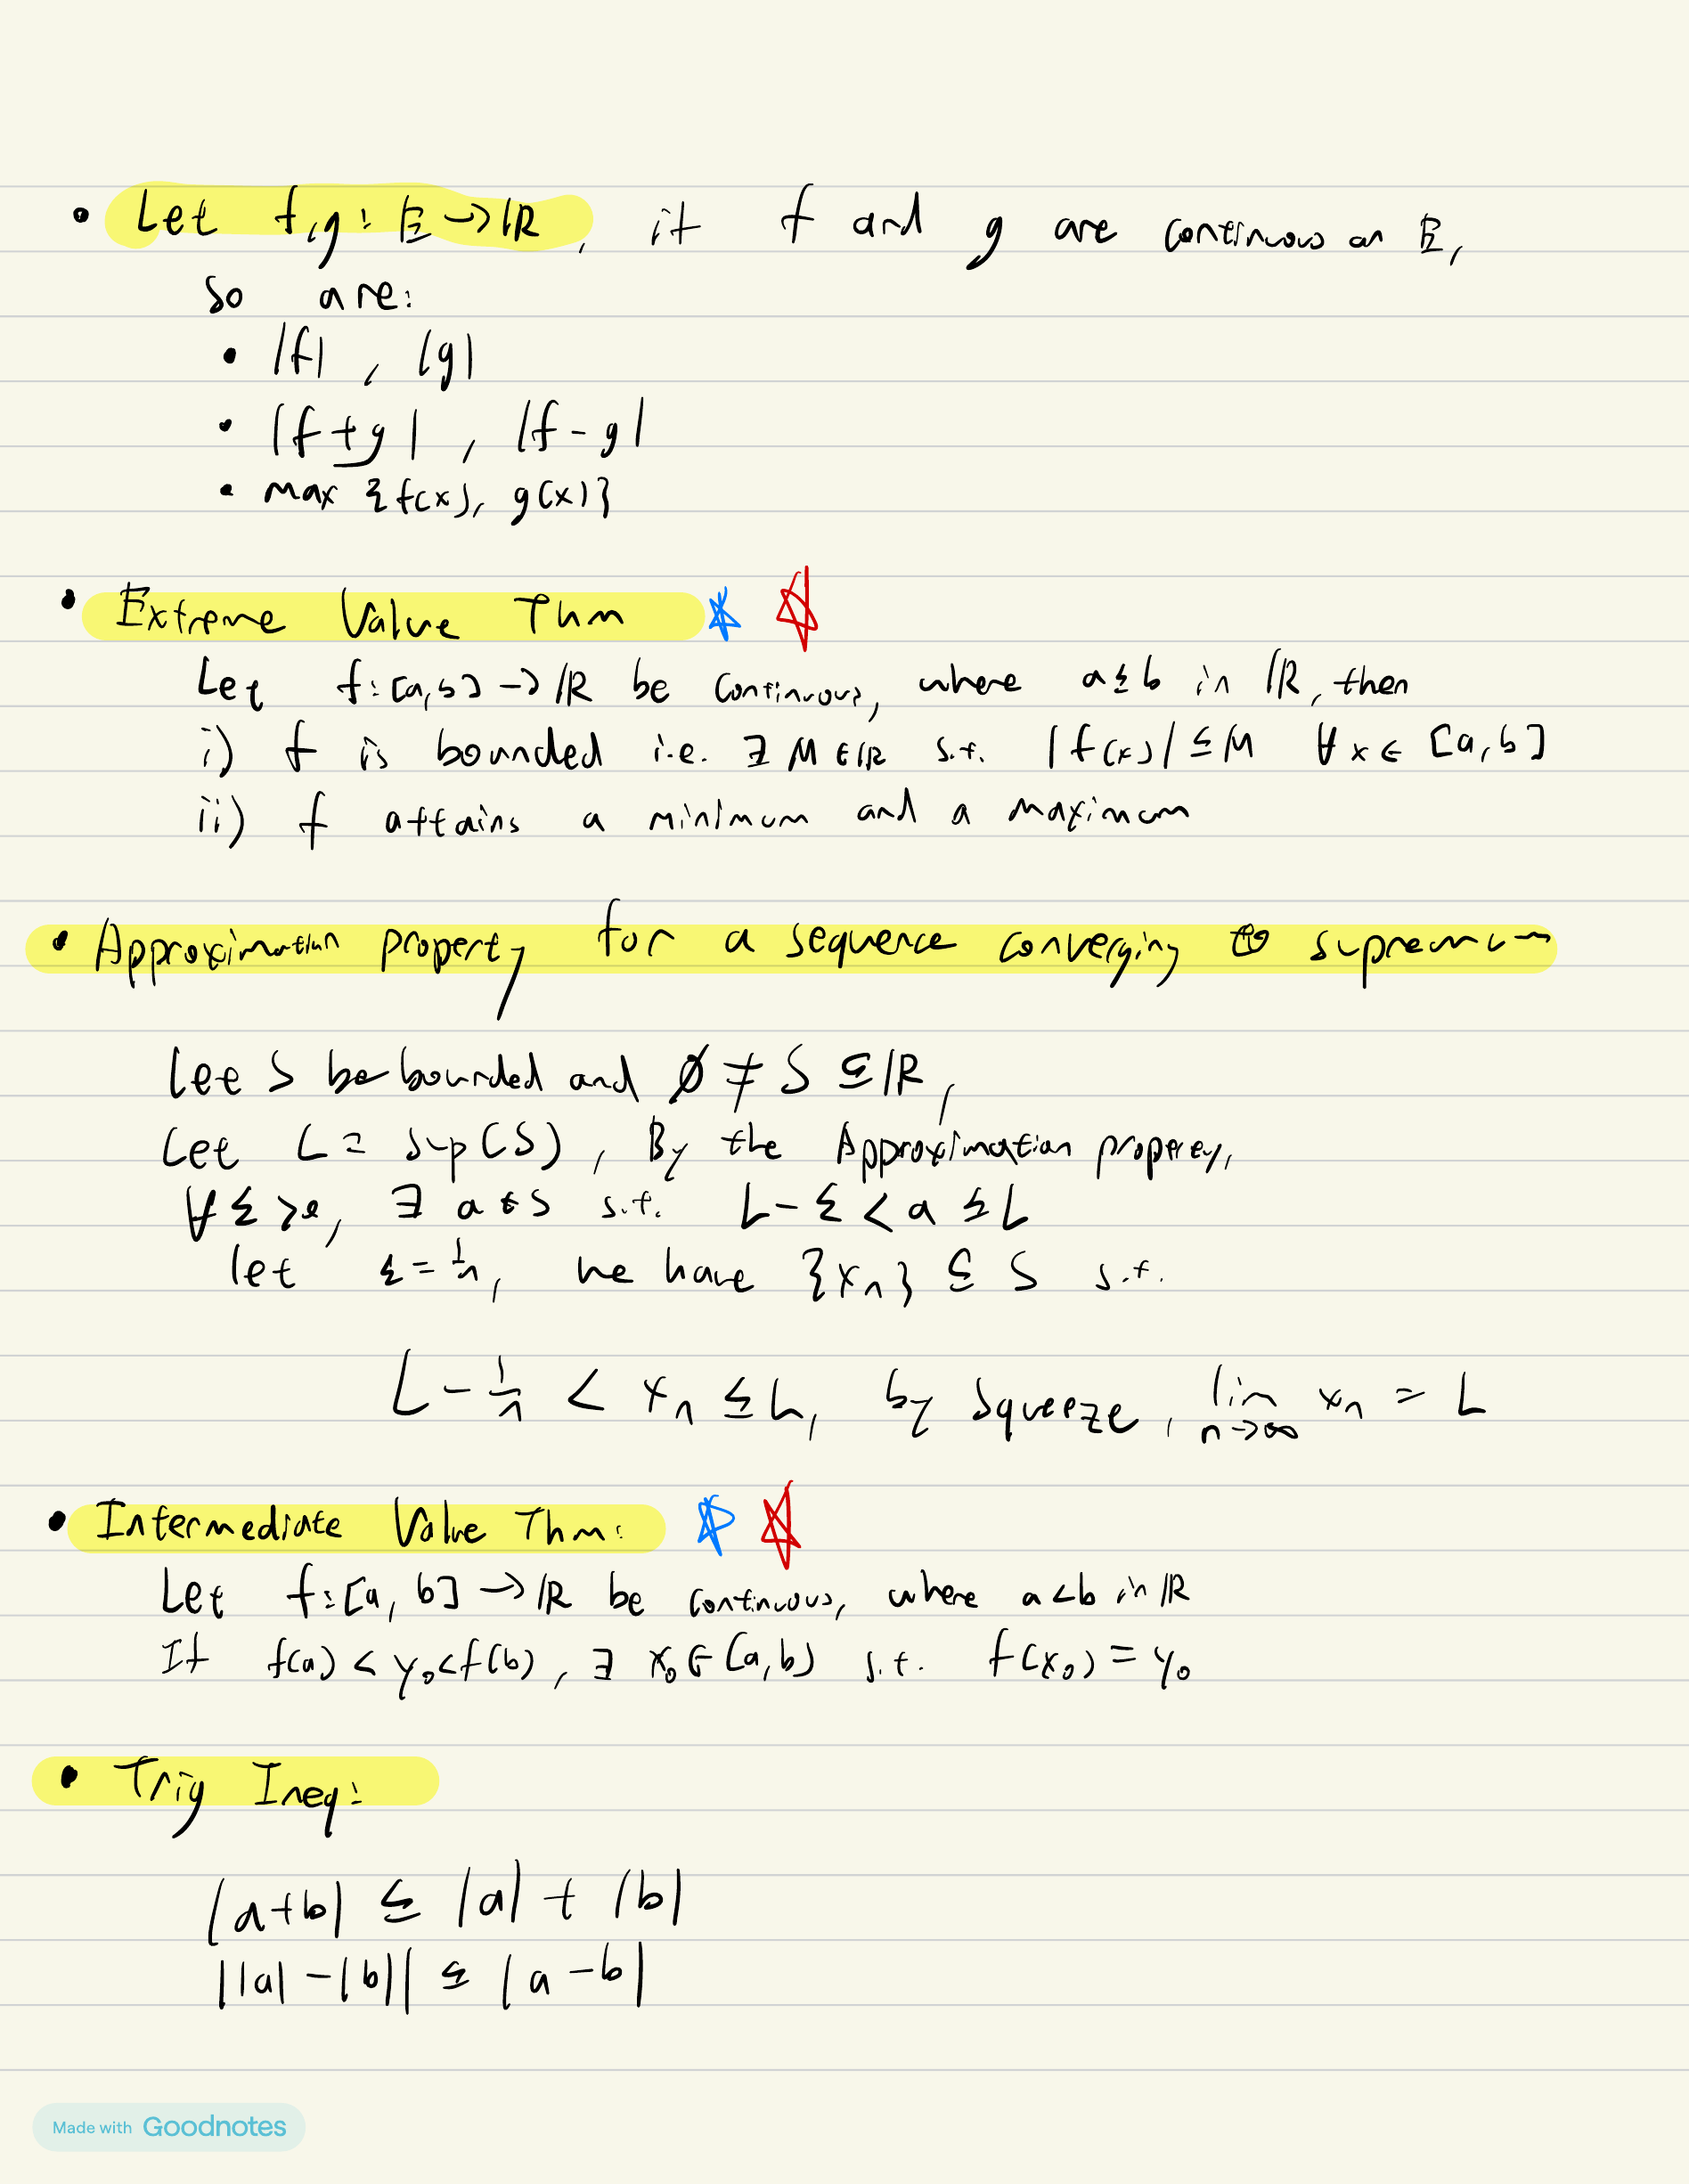 • Let f,g: E → ℝ, if f and g are continuous on E,
so are:
• |f| , |g|
• |f+g| , |f-g|
• max {f(x), g(x)}
• Extreme Value Thm
Let f:[a,b] → ℝ be continuous, where a≤b in ℝ, then
i) f is bounded i.e. ∃ M∈ℝ s.t. |f(x)| ≤ M ∀x∈ [a,b]
ii) f attains a minimum and a maximum
• Approximation property for a sequence converging to supremum
Let S be bounded and ∅ ≠ S ⊆ ℝ,
Let L = sup(S), By the Approximation property,
∀ε>0, ∃ a∈S s.t. L-ε < a ≤ L
let ε = 1/n, we have {xₙ} ⊆ S s.t.
L - 1/n < xₙ ≤ L, by squeeze, lim n→∞ xₙ = L
• Intermediate Value Thm:
Let f:[a,b] → ℝ be continuous, where a<b in ℝ
If f(a) < y₀ < f(b), ∃ x₀∈(a,b) s.t. f(x₀) = y₀
• Trig Ineq:
|a+b| ≤ |a| + |b|
||a| - |b|| ≤ |a-b|
Made with Goodnotes